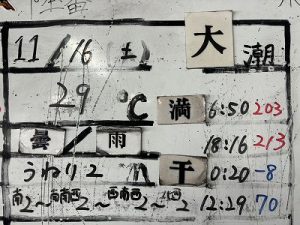 11/16(土) 大潮
29℃ 満 6:50 203
曇/雨 18:16 213
うねり2m 干 0:20 -8
南2～南南西2～西南西2～北西2 12:29 70